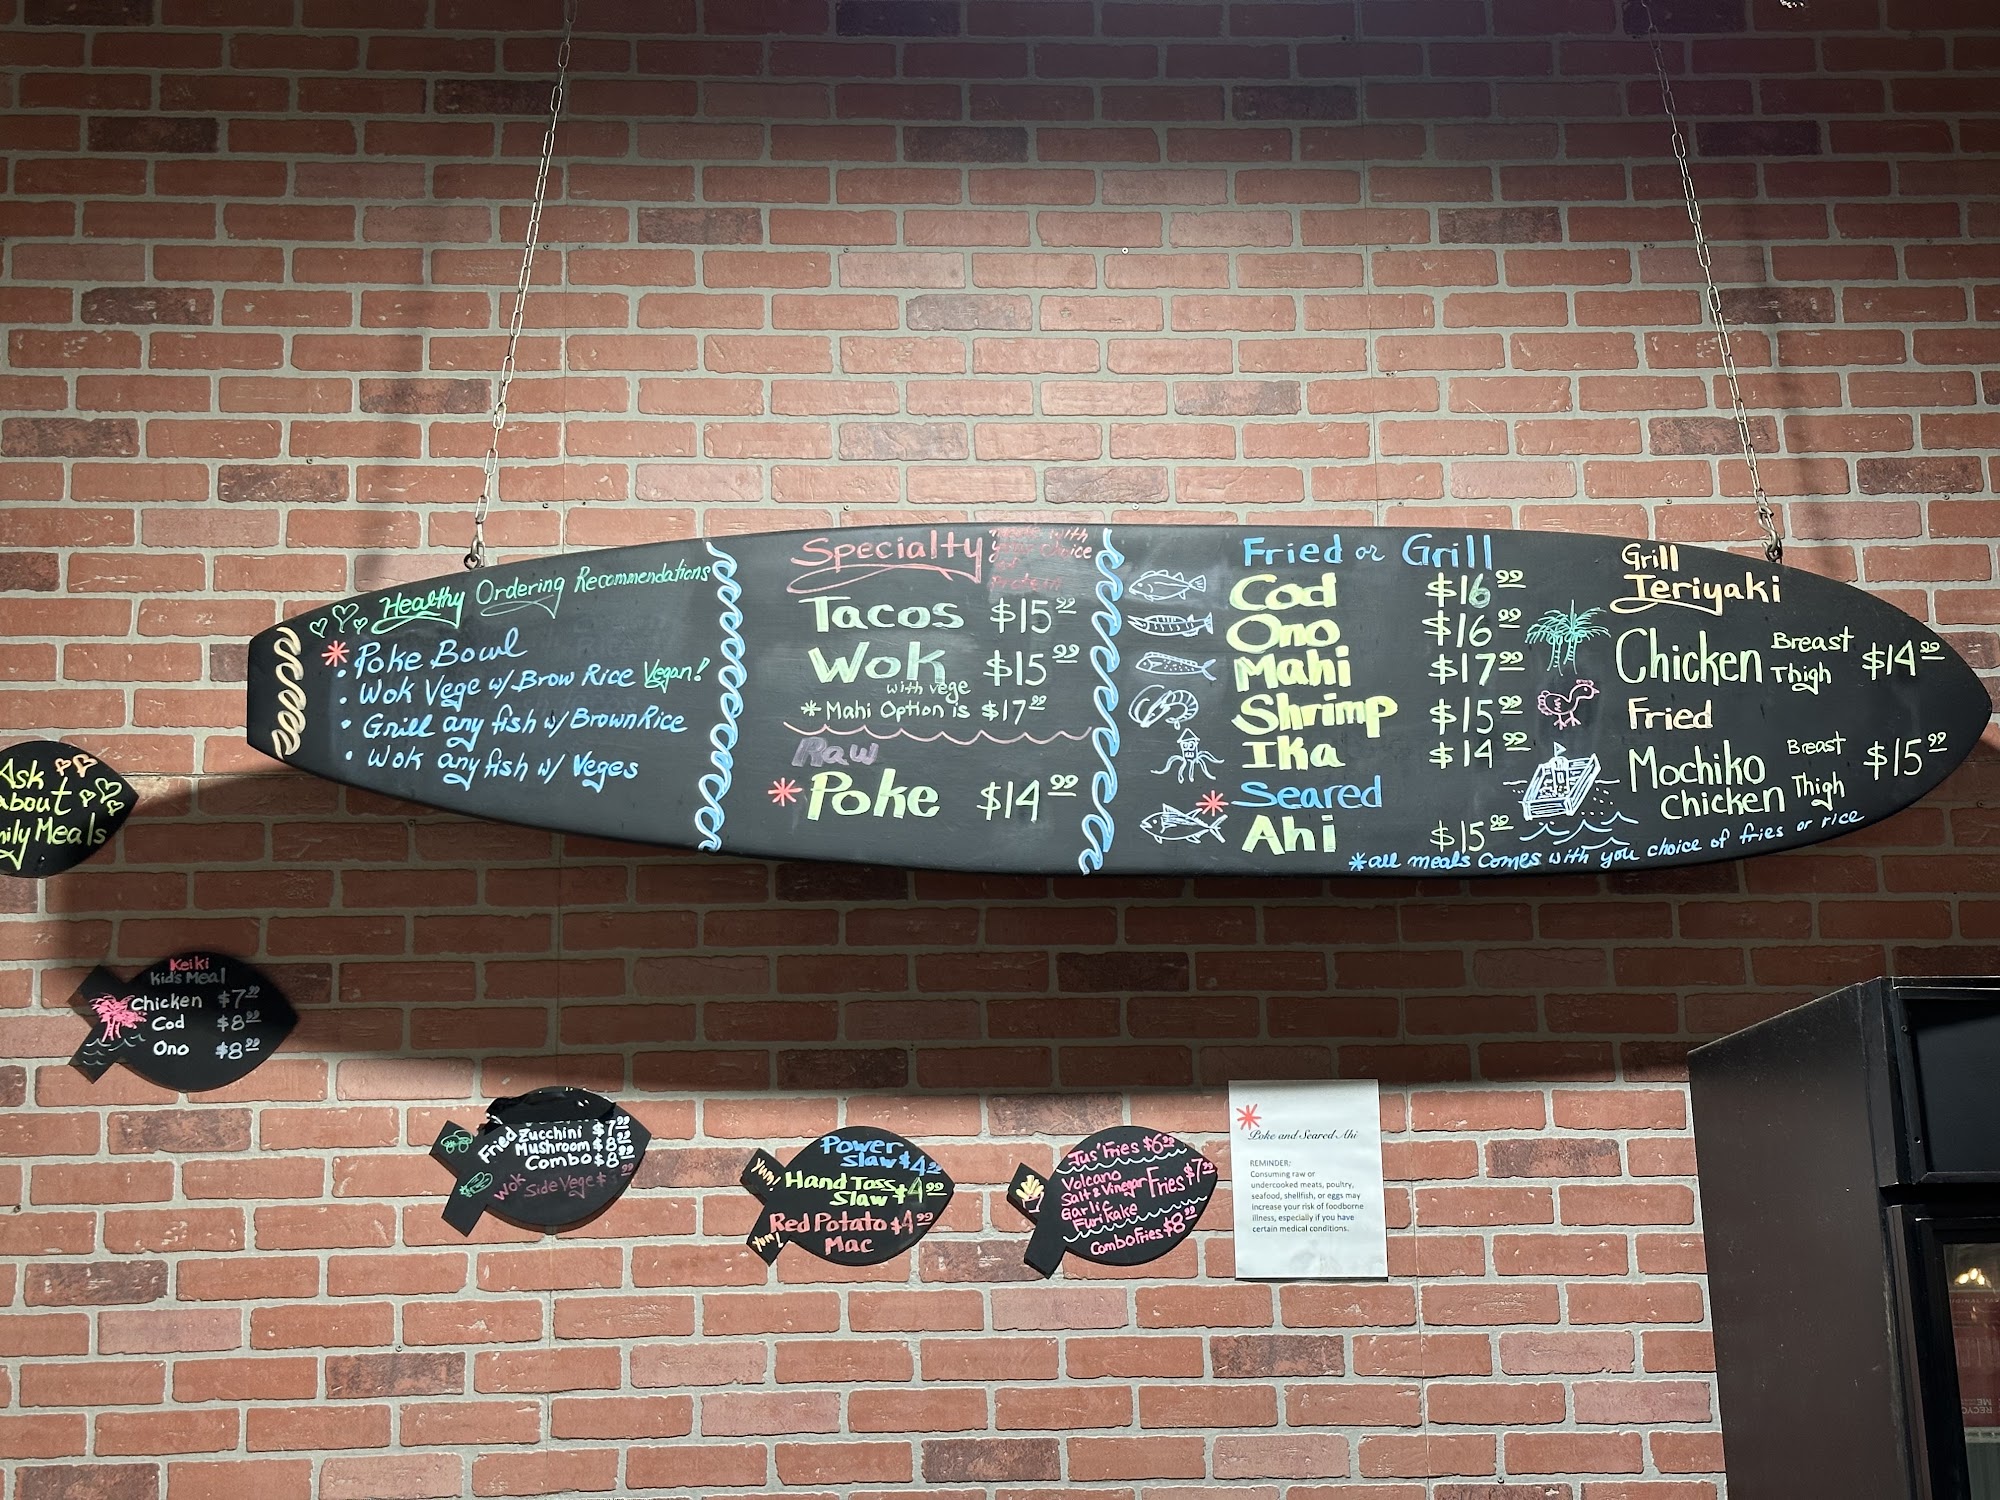 Healthy Ordering Recommendations
* Poke Bowl
• Wok Vege w/ Brow Rice Vegan!
• Grill any fish w/ Brown Rice
• Wok any fish w/ Veges
Specialty
meals with
your choice
of
Protein
Tacos $15.99
Wok $15.99
with vege
* Mahi Option is $17.99
Raw
* Poke $14.99
Fried or Grill
Cod $16.99
Ono $16.99
Mahi $17.99
Shrimp $15.99
Ika $14.99
* Seared
Ahi $15.99
Grill
Teriyaki
Chicken Breast
Thigh $14.99
Fried
Mochiko Breast
chicken Thigh $15.99
*all meals comes with you choice of fries or rice
Ask
about
ily Meals
Keiki
Kid's Meal
Chicken $7.99
Cod $8.99
Ono $8.99
Fried
Zucchini $7.99
Mushroom $8.99
Combo $8.99
Wok Side Vege $
Yum!
Power
Slaw $4.99
Hand Toss
Slaw $4.99
Yum!
Red Potato $4.99
Mac
Jus' Fries $6.99
Volcano
Salt & Vinegar Fries $7.99
Garlic
Furikake
Combo Fries $8.99
*
Poke and Seared Ahi
REMINDER:
Consuming raw or
undercooked meats, poultry,
seafood, shellfish, or eggs may
increase your risk of foodborne
illness, especially if you have
certain medical conditions.